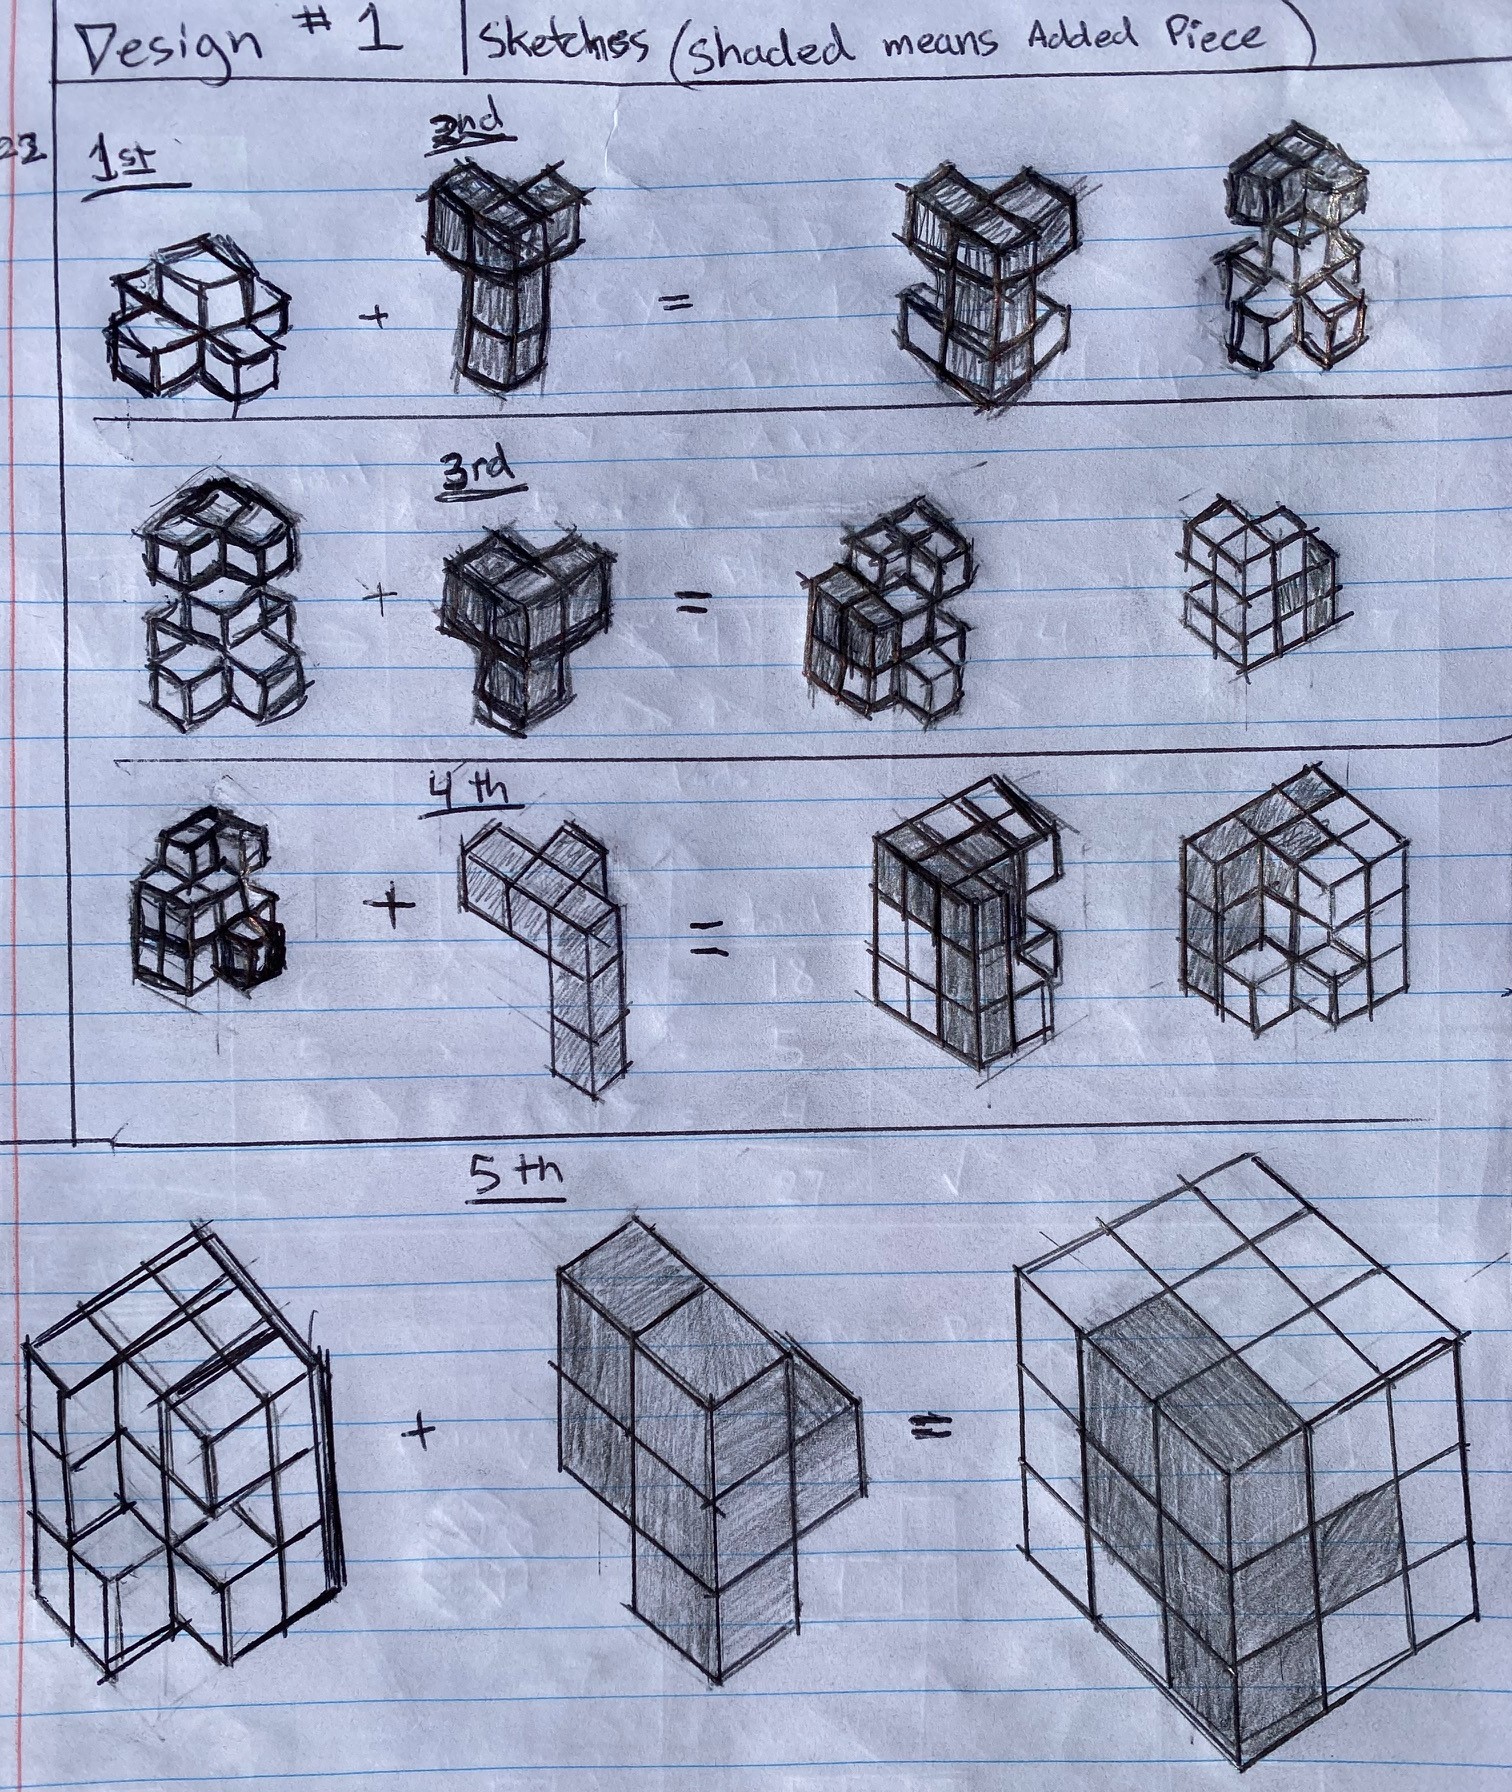 Design #1
Sketches (Shaded means Added Piece)
1st
2nd
+
=
3rd
+
=
4th
+
=
5th
+
=